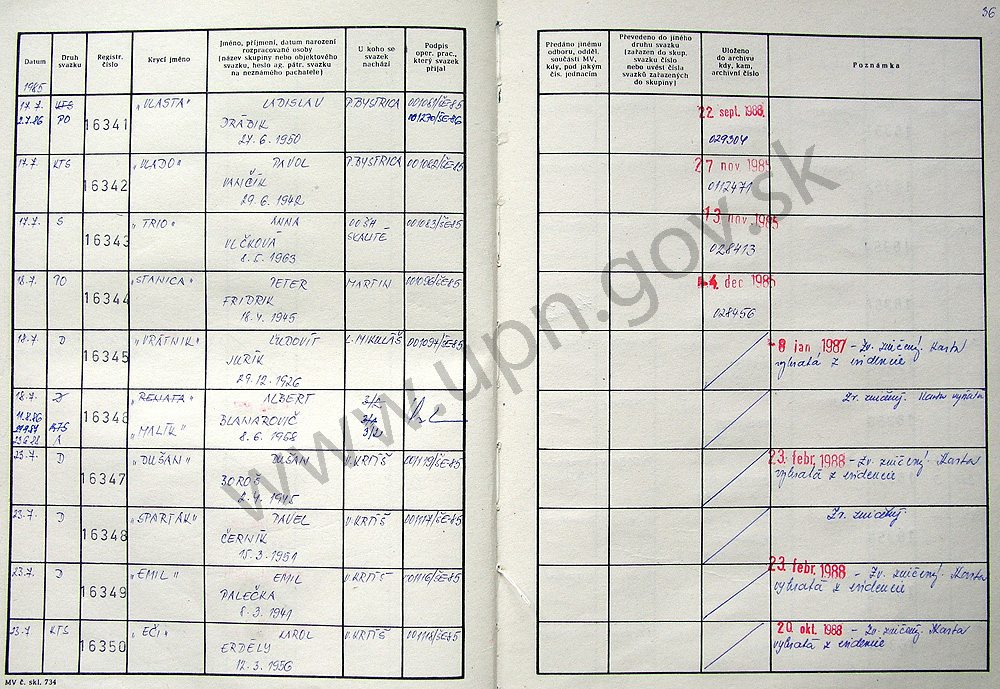 36
Datum
Druh svazku
Registr. číslo
Krycí jméno
Jméno, příjmení, datum narození rozpracované osoby (název skupiny nebo objektového svazku, heslo ag. pátr. svazku na neznámého pachatele)
U koho se svazek nachází
Podpis oper. prac., který svazek přijal
Předáno jinému odboru, odděl. součásti MV, kdy, pod jakým čís. jednacím
Převedeno do jiného druhu svazku (zařazen do skup. svazku číslo nebo uvést čísla svazků zařazených do skupiny)
Uloženo do archivu kdy, kam, archivní číslo
Poznámka
1985
17.7. KTS 16341 „VLASTA" LADISLAV P. BYSTRICA 001061/ŠE-85 22 sept. 1988
2.7.86 PO DRÁBIK 001270/ŠE-86 029304
27. 6. 1950
17.7. KTS 16342 „VLADO" PAVOL P. BYSTRICA 001062/ŠE-85 27 nov 1985
VANČÍK 0112471
29. 6. 1942
17.7. S 16343 „TRIO" ANNA OO ŠH 001083/ŠE-85 13 nov. 1985
VLČKOVÁ SKALITÉ 028413
8. 5. 1963
18.7. PO 16344 „STANICA" PETER MARTIN 001096/ŠE-85 4. dec 1985
FRIDRIK 028456
18. 4. 1945
18.7. D 16345 „VRÁTNIK" ĽUDOVÍT L. MIKULÁŠ 001094/ŠE-85 -8 jan 1987 - Zv. zničený. Karta
JURÍK vybratá z evidencie
29. 12. 1926
18.7. D 16346 „RENATA" ALBERT Zv. zničený. Karta vybratá
11.8.86 KTS „MALÍK" BLANAROVIČ
A 8. 6. 1968
23.7. D 16347 „DUŠAN" DUŠAN V. KRTÍŠ 001119/ŠE-85 23. febr. 1988 - Zv. zničený. Karta
BOROŠ vybratá z evidencie
2. 4. 1945
23.7. D 16348 „SPARTAK" PAVEL V. KRTÍŠ 001117/ŠE-85 Zv. zničený
ČERNÍK
15. 3. 1951
23.7. D 16349 „EMIL" EMIL V. KRTÍŠ 001116/ŠE-85 23. febr. 1988 - Zv. zničený. Karta
PALEČKA vybratá z evidencie
8. 3. 1941
23.7. KTS 16350 „EČI" KAROL V. KRTÍŠ 001118/ŠE-85 20. okt. 1988 - Zv. zničený. Karta
ERDÉLY vybratá z evidencie
12. 3. 1956
MV č. skl. 734
www.upn.gov.sk